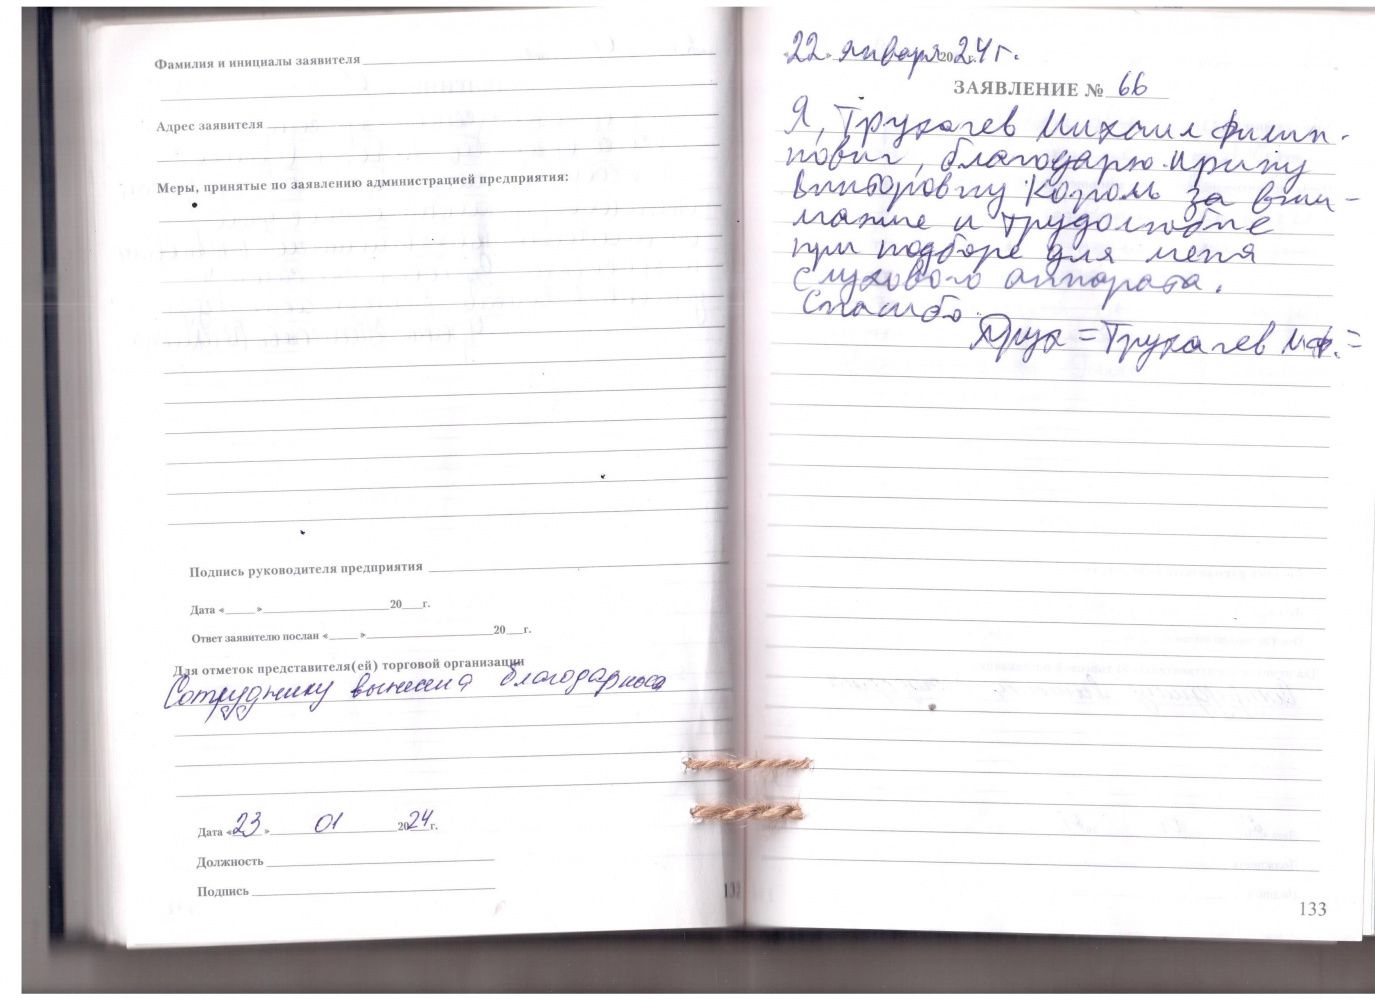 Фамилия и инициалы заявителя
Адрес заявителя
Меры, принятые по заявлению администрацией предприятия:
Подпись руководителя предприятия
Дата « » 20 г.
Ответ заявителю послан « » 20 г.
Для отметок представителя(ей) торговой организации
Сотруднику вынесена благодарность
Дата «23» 01 2024г.
Должность
Подпись
132
«22» января 2024 г.
ЗАЯВЛЕНИЕ № 66
Я, Трухачев Михаил Филип-
пович, благодарю Ирину
Викторовну Король за вни-
мание и трудолюбие
при подборе для меня
слухового аппарата.
Спасибо.
=Трухачев МФ.=
133